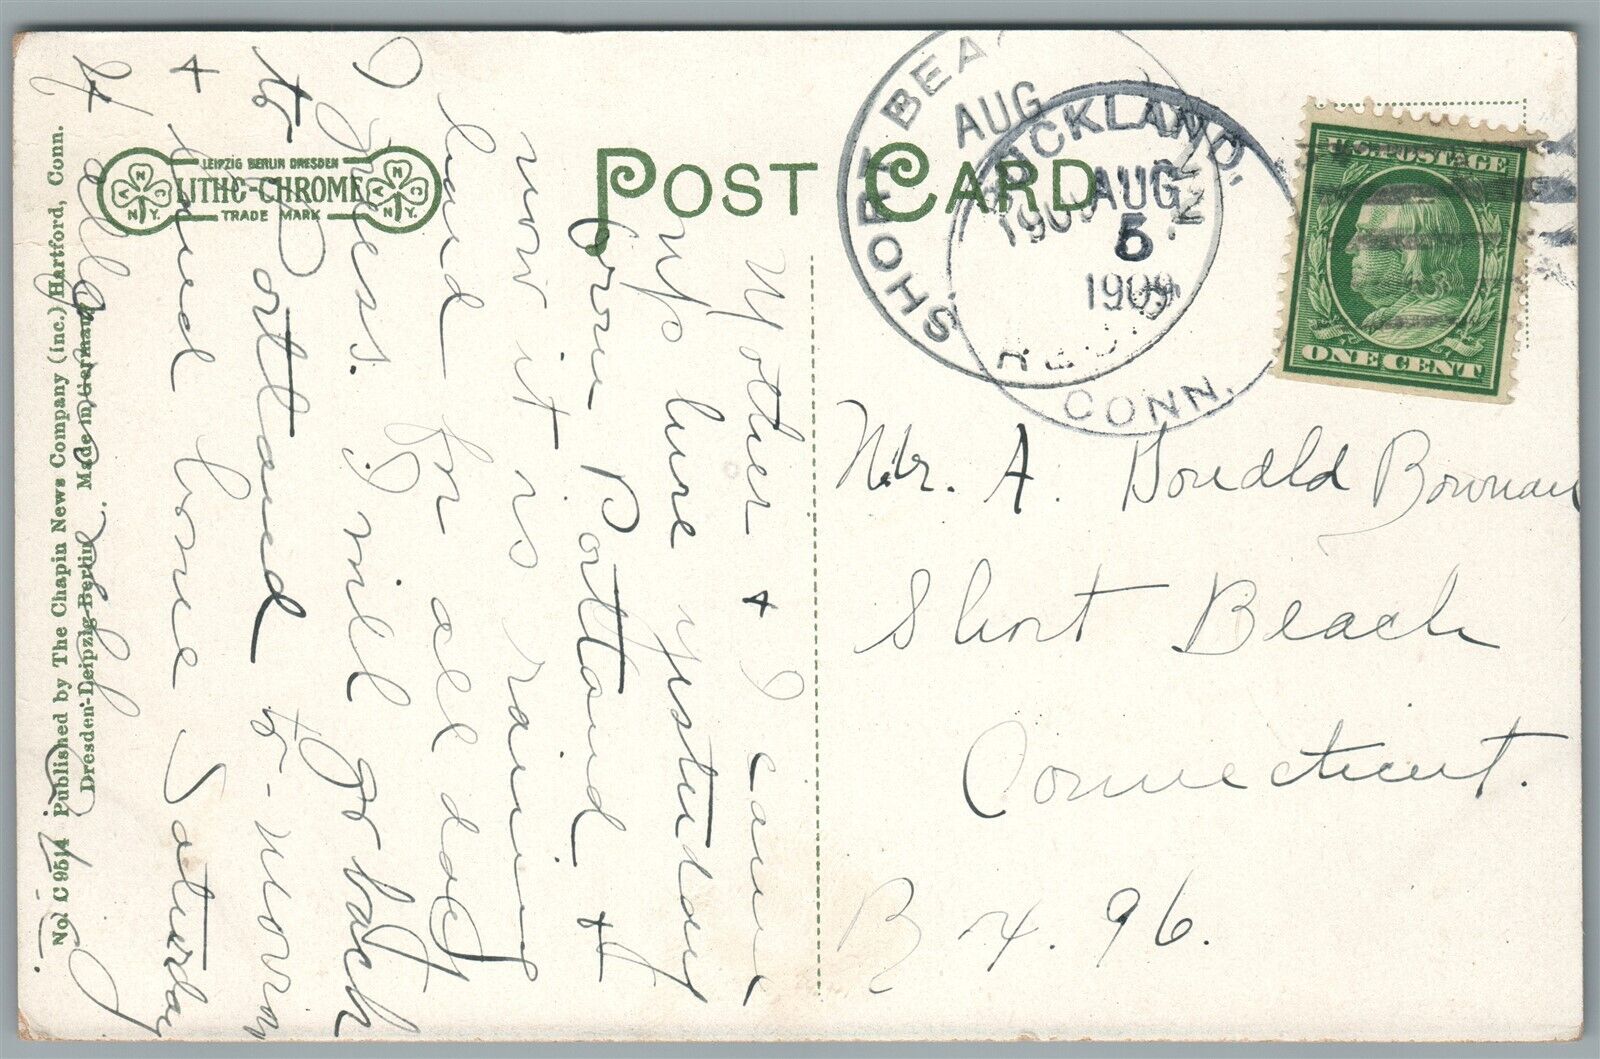 POST CARD
LEIPZIG BERLIN DRESDEN
LITHO-CHROME
TRADE MARK
C N N.Y.
C N N.Y.
No. C 9514 Published by The Chapin News Company (Inc.) Hartford, Conn.
Dresden-Leipzig-Berlin. Made in Germany
SHORT BEACH
AUG
1909
CONN
REC'D
BUCKLAND,
AUG
5
1909
CONN.
U.S. POSTAGE
ONE CENT
Mother + I came
up here yesterday
from Portland +
now it is raining
hard for all day
I guess. I will go back
to Portland to-morrow
+ and home Saturday
Mr. A. Donald Bowman
Short Beach
Connecticut.
Bx. 96.